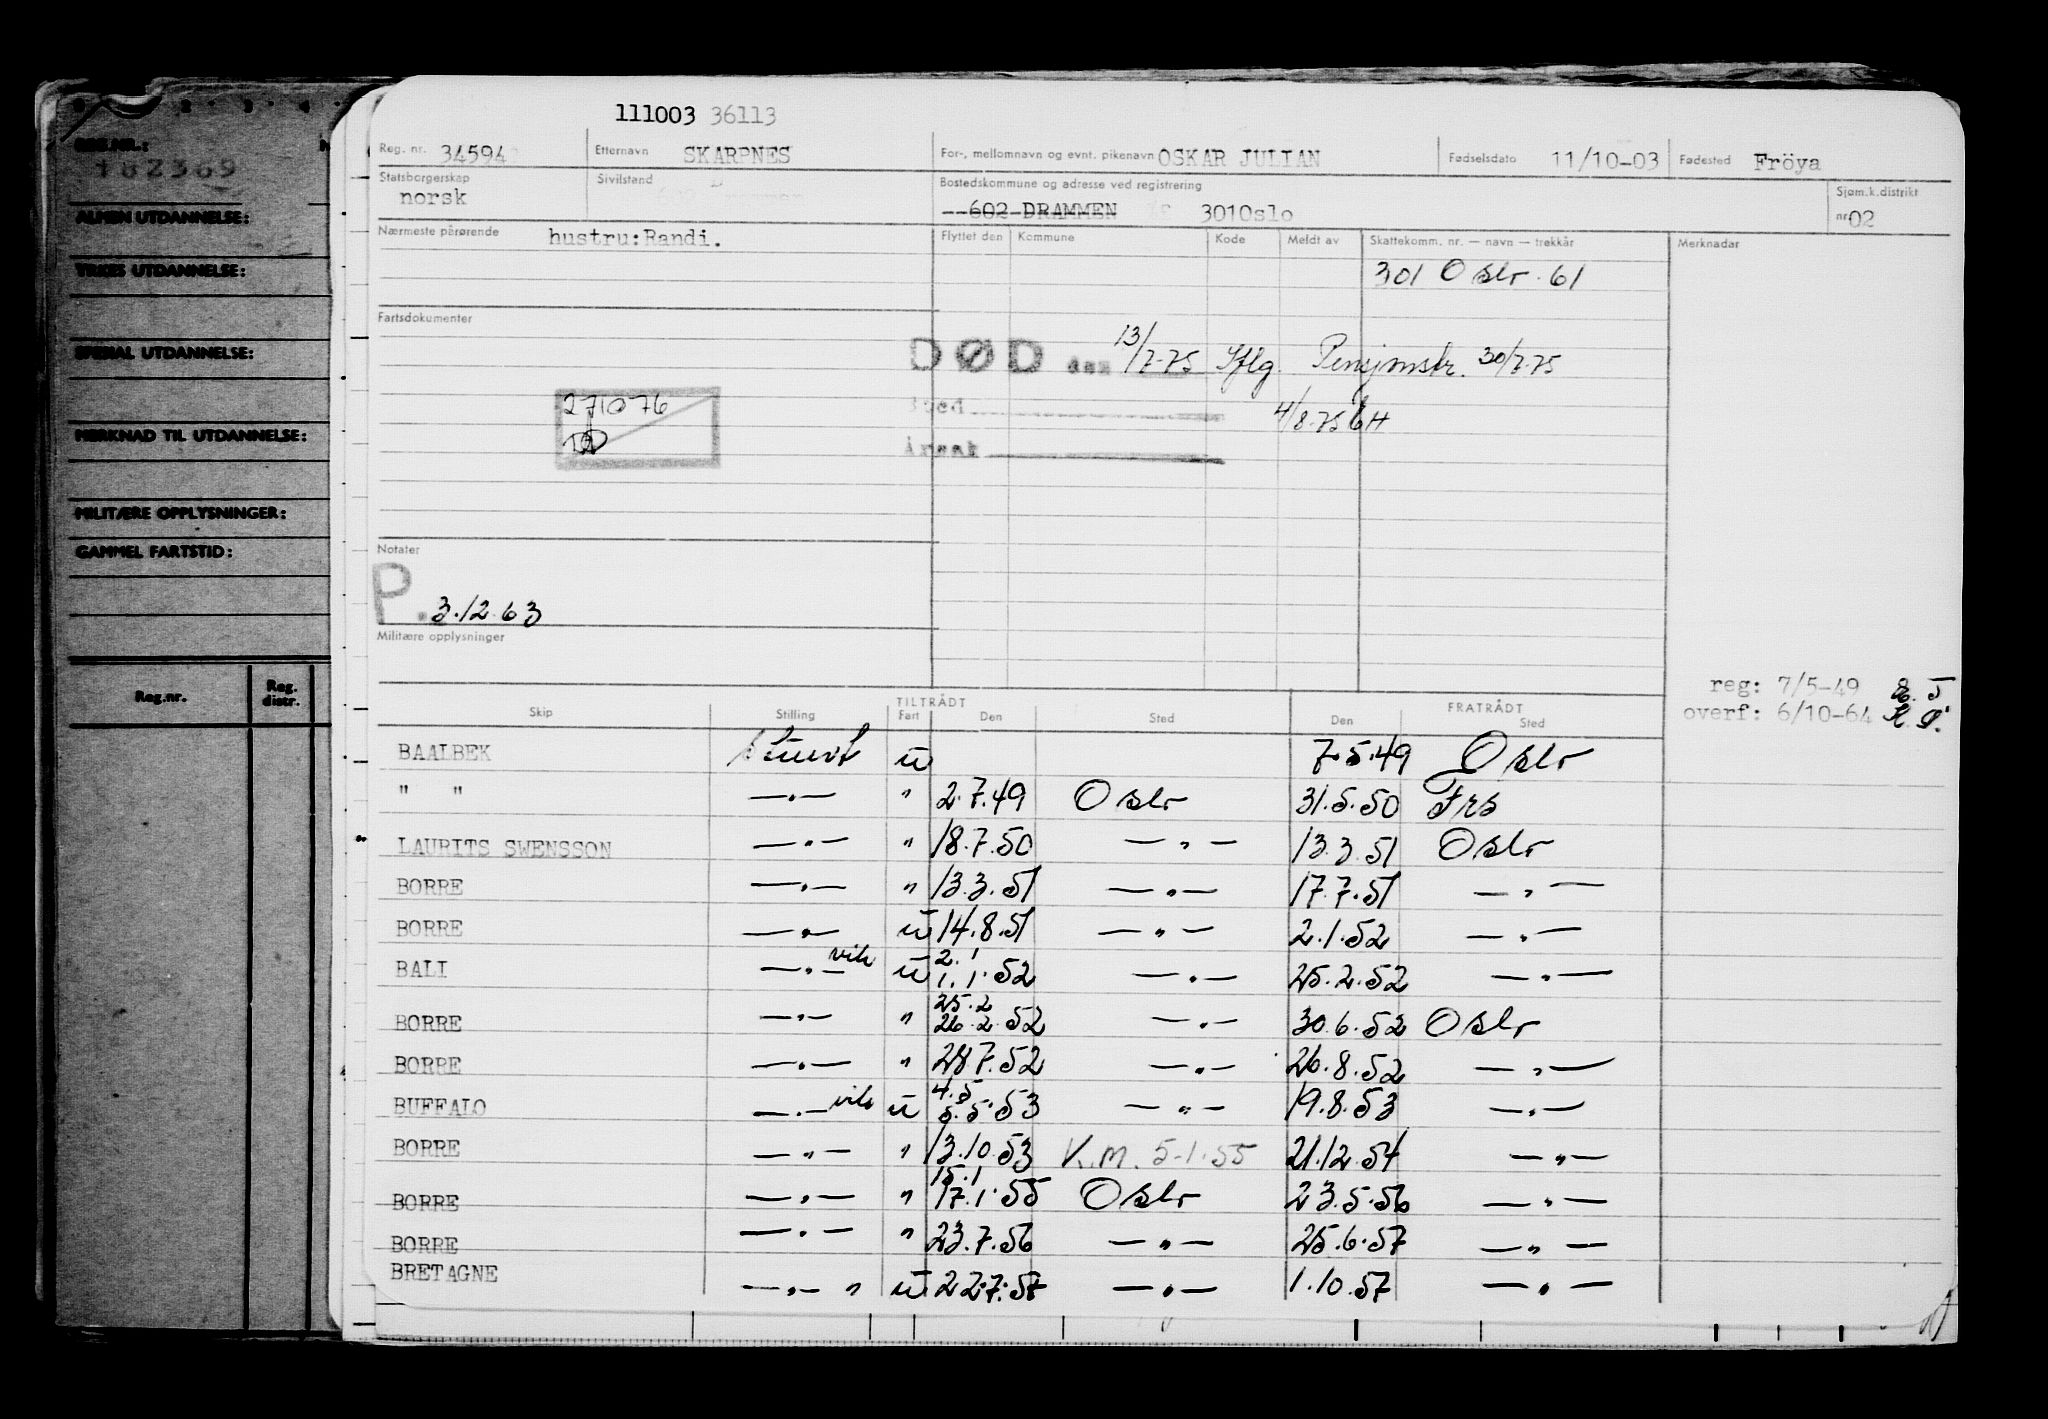 REG.NR.:
182369
ALMEN UTDANNELSE:
YRKES UTDANNELSE:
SPESIAL UTDANNELSE:
MERKNAD TIL UTDANNELSE:
MILITÆRE OPPLYSNINGER:
GAMMEL FARTSTID:
Reg.nr. Reg. distr.
111003 36113
Reg. nr. 34594 Etternavn SKARPNES For-, mellomnavn og evnt. pikenavn OSKAR JULIAN Fødselsdato 11/10-03 Fødested Fröya
Statsborgerskap norsk Sivilstand Bostedskommune og adresse ved registrering 602 DRAMMEN 301Oslo Sjøm.k.distrikt nr 02
Nærmeste pårørende hustru:Randi. Flyttet den Kommune Kode Meldt av Skattekomm. nr. — navn — trekkår Merknader
301 Oslo 61
Fartsdokumenter
DØD den 13/7-75 Iflg. Pensjonstr. 30/7-75
Sted 4/8-75
Årsak
271076
Notater
P. 3.12.63
Militære opplysninger
reg: 7/5-49
overf: 6/10-64
TILTRÅDT FRATRÅDT
Skip Stilling Fart Den Sted Den Sted
BAALBEK Stuert u 7.5.49 Oslo
" " —"— " 2.7.49 Oslo 31.5.50 Frs
LAURITS SWENSSON —"— " 18.7.50 —"— 13.3.51 Oslo
BORRE —"— " 13.3.51 —"— 17.7.51 —"—
BORRE —"— u 14.8.51 —"— 2.1.52 —"—
BALI —"— vik u 2.1 1.1.52 —"— 25.2.52 —"—
BORRE —"— " 25.2 26.2.52 —"— 30.6.52 Oslo
BORRE —"— " 28.7.52 —"— 26.8.52 —"—
BUFFALO —"— vik u 4.5 5.5.53 —"— 19.8.53 —"—
BORRE —"— " 13.10.53 K.M. 5-1-55 21.12.54 —"—
BORRE —"— " 15.1 17.1.55 Oslo 23.5.56 —"—
BORRE —"— " 23.7.56 —"— 25.6.57 —"—
BRETAGNE —"— " u 22.7.57 —"— 1.10.57 —"—